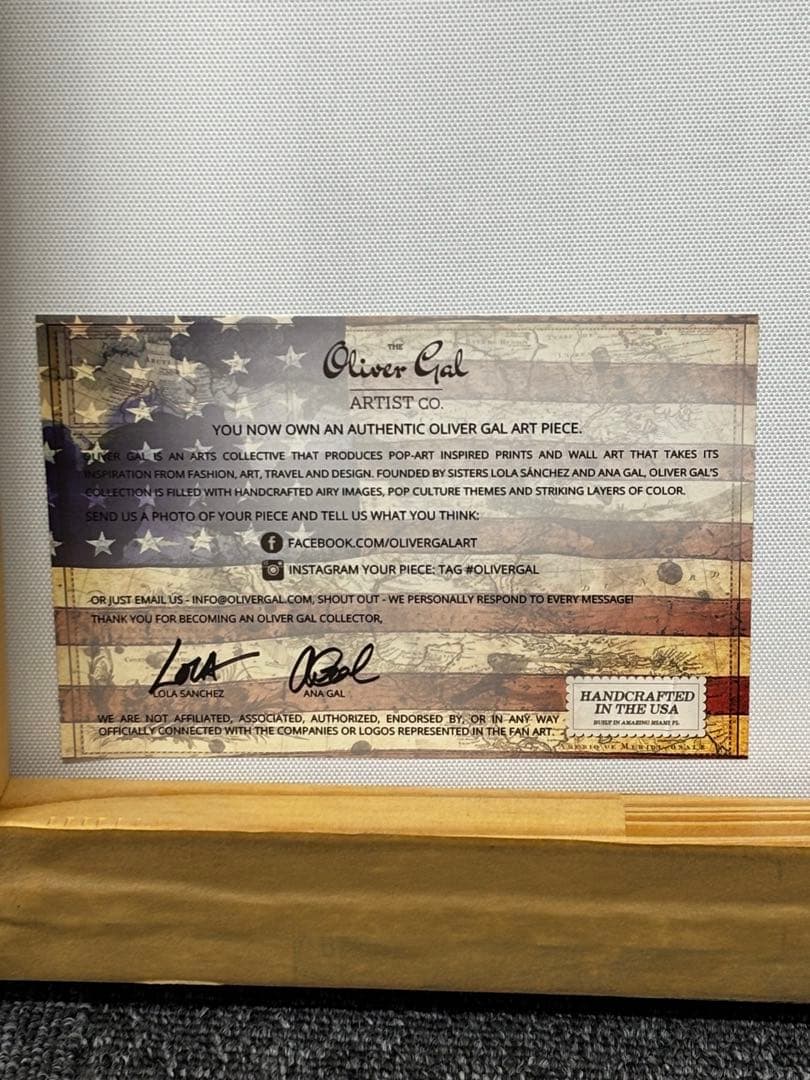 THE
Oliver Gal
ARTIST CO.
YOU NOW OWN AN AUTHENTIC OLIVER GAL ART PIECE.
OLIVER GAL IS AN ARTS COLLECTIVE THAT PRODUCES POP-ART INSPIRED PRINTS AND WALL ART THAT TAKES ITS
INSPIRATION FROM FASHION, ART, TRAVEL AND DESIGN. FOUNDED BY SISTERS LOLA SÁNCHEZ AND ANA GAL, OLIVER GAL'S
COLLECTION IS FILLED WITH HANDCRAFTED AIRY IMAGES, POP CULTURE THEMES AND STRIKING LAYERS OF COLOR.
SEND US A PHOTO OF YOUR PIECE AND TELL US WHAT YOU THINK:
f FACEBOOK.COM/OLIVERGALART
INSTAGRAM YOUR PIECE: TAG #OLIVERGAL
OR JUST EMAIL US - INFO@OLIVERGAL.COM, SHOUT OUT - WE PERSONALLY RESPOND TO EVERY MESSAGE!
THANK YOU FOR BECOMING AN OLIVER GAL COLLECTOR,
LOLA
LOLA SANCHEZ
ANA GAL
HANDCRAFTED
IN THE USA
BUILT IN AMAZING MIAMI, FL
WE ARE NOT AFFILIATED, ASSOCIATED, AUTHORIZED, ENDORSED BY, OR IN ANY WAY
OFFICIALLY CONNECTED WITH THE COMPANIES OR LOGOS REPRESENTED IN THE FAN ART.